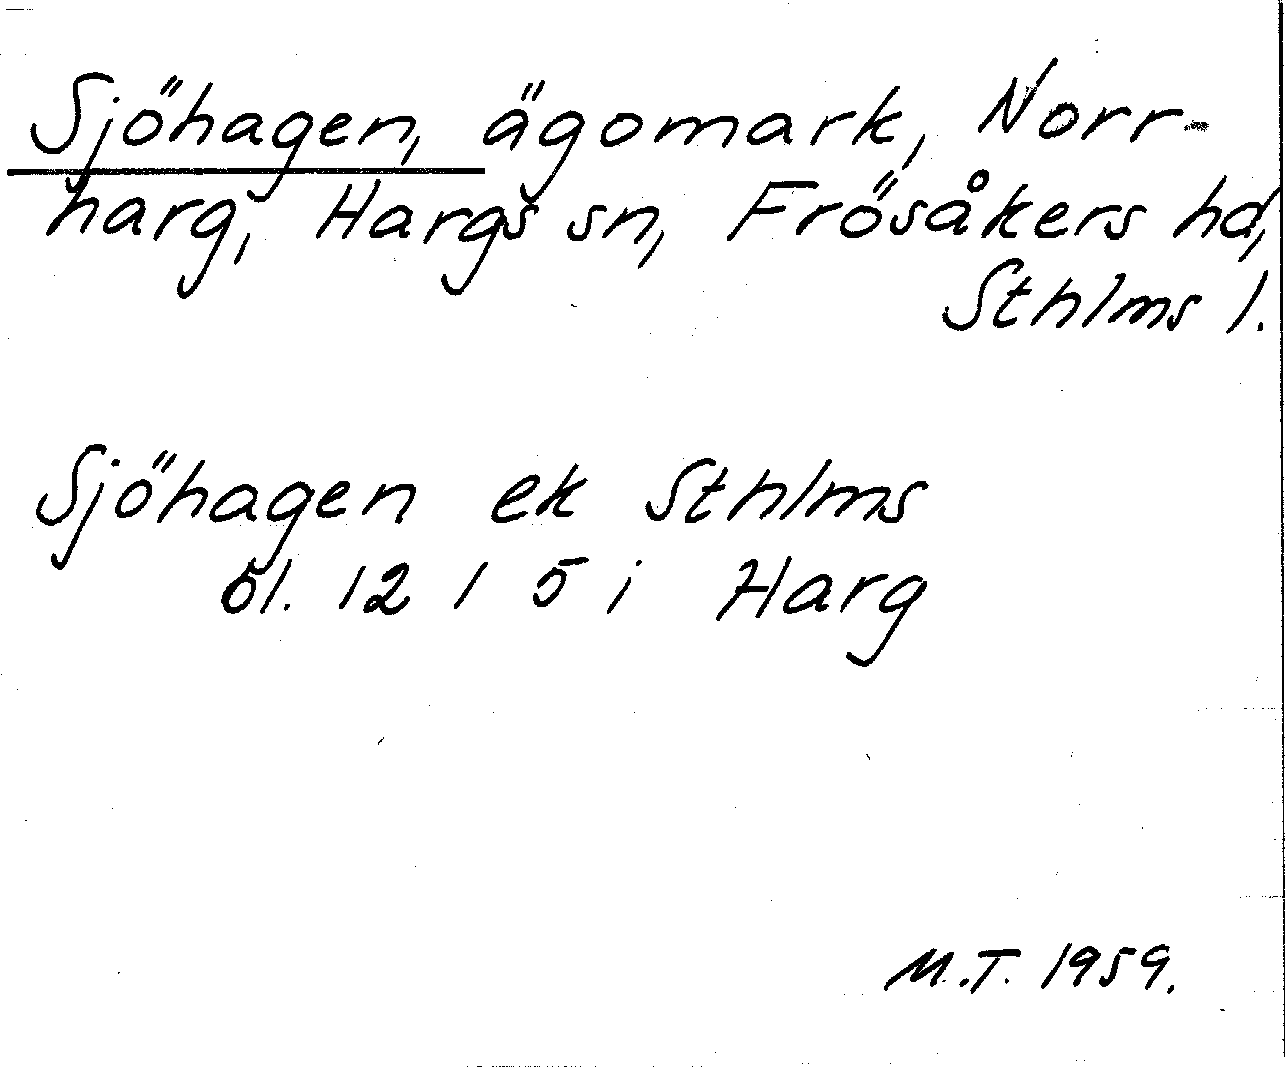 Sjöhagen, ägomark, Norr-
harg, Hargs sn, Frösåkers hd,
Sthlms l.
Sjöhagen ek Sthlms
bl. 12 1 5 i Harg
M.T. 1959.